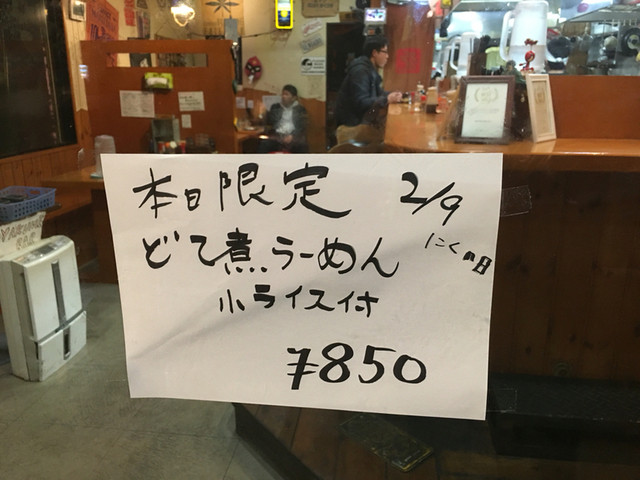 本日限定 2/9
どて煮らーめん にくの日
小ライス付
¥850